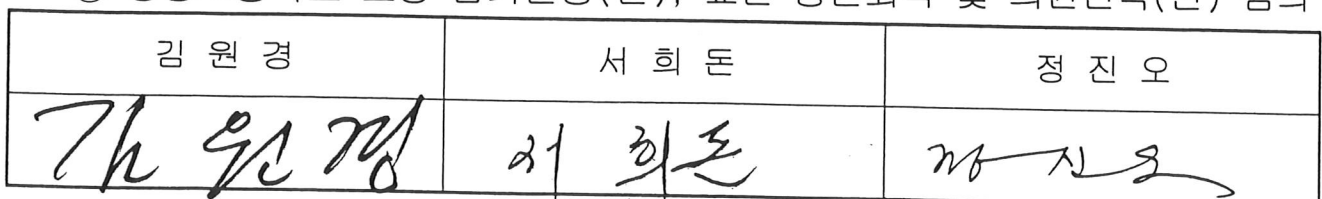 김 원 경 서 희 돈 정 진 오
김 원 경 서 희 돈 정 진 오